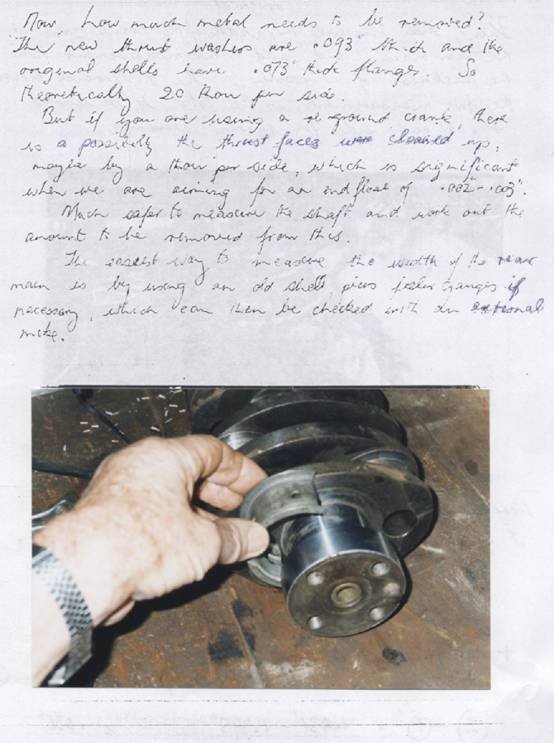 Now, how much metal needs to be removed?
The new thrust washers are .093" thick and the
original shells have .073" thick flanges. So
theoretically 20 thou per side.
But if you are using a reground crank, there
is a possibility the thrust faces were cleaned up,
maybe by a thou per side, which is significant
when we are aiming for an endfloat of .002-.003".
Much safer to measure the shaft and work out the
amount to be removed from this.
The easiest way to measure the width of the rear
main is by using an old shell plus feeler gauges if
necessary, which can then be checked with an external
mike.